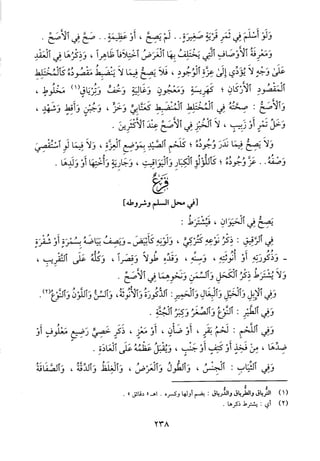 ولو أسلم في ثمر قرية صغيرة .. لم يصح ، أو عظيمة .. صح في الأصح .
ومعرفة الأوصاف التي يختلف بها الغرض اختلافاً ظاهراً ، وذكرها في العقد
على وجه لا يؤدي إلى عزة الوجود ، فلا يصح فيما لا ينضبط مقصوده كالمختلط
المقصود الأركان ؛ كهريسة ومعجون وغالية وخف وترياق(١) مخلوط ،
والأصح : صحته في المختلط المنضبط كعتابي وخز ، وجبن وأقط وشهد ،
وخل تمر أو زبيب ، لا الخبز في الأصح عند الأكثرين .
ولا يصح فيما ندر وجوده ؛ كلحم الصيد بموضع العزة ، ولا فيما لو استقصي
وصفه .. عز وجوده ؛ كاللؤلؤ الكبار واليواقيت ، وجارية وأختها أو ولدها .
فرع
[في محل السلم وشروطه]
يصح في الحيوان ، فيشترط :
في الرقيق : ذكر نوعه كتركي ، ولونه كأبيض - ويصف بياضه بسمرة أو شقرة
- وذكورته أو أنوثته ، وسنه ، وقده طولاً وقصراً ، وكله على التقريب ،
ولا يشترط ذكر الكحل والسمن ونحوهما في الأصح .
وفي الإبل والخيل والبغال والحمير : الذكورة والأنوثة ، والسن واللون والنوع(٢) .
وفي الطير : النوع والصغر وكبر الجثة .
وفي اللحم : لحم بقر ، أو ضأن ، أو معز ، ذكر خصي رضيع معلوف أو
ضدها ، من فخذ أو كتف أو جنب ، ويقبل عظمه على العادة .
وفي الثياب : الجنس ، والطول والعرض ، والغلظ والدقة ، والصفاقة
(١) الترياق والطرياق والدرياق : بضم أولها وكسره . اهـ « دقائق » .
(٢) أي : يشترط ذكرها .
٢٣٨